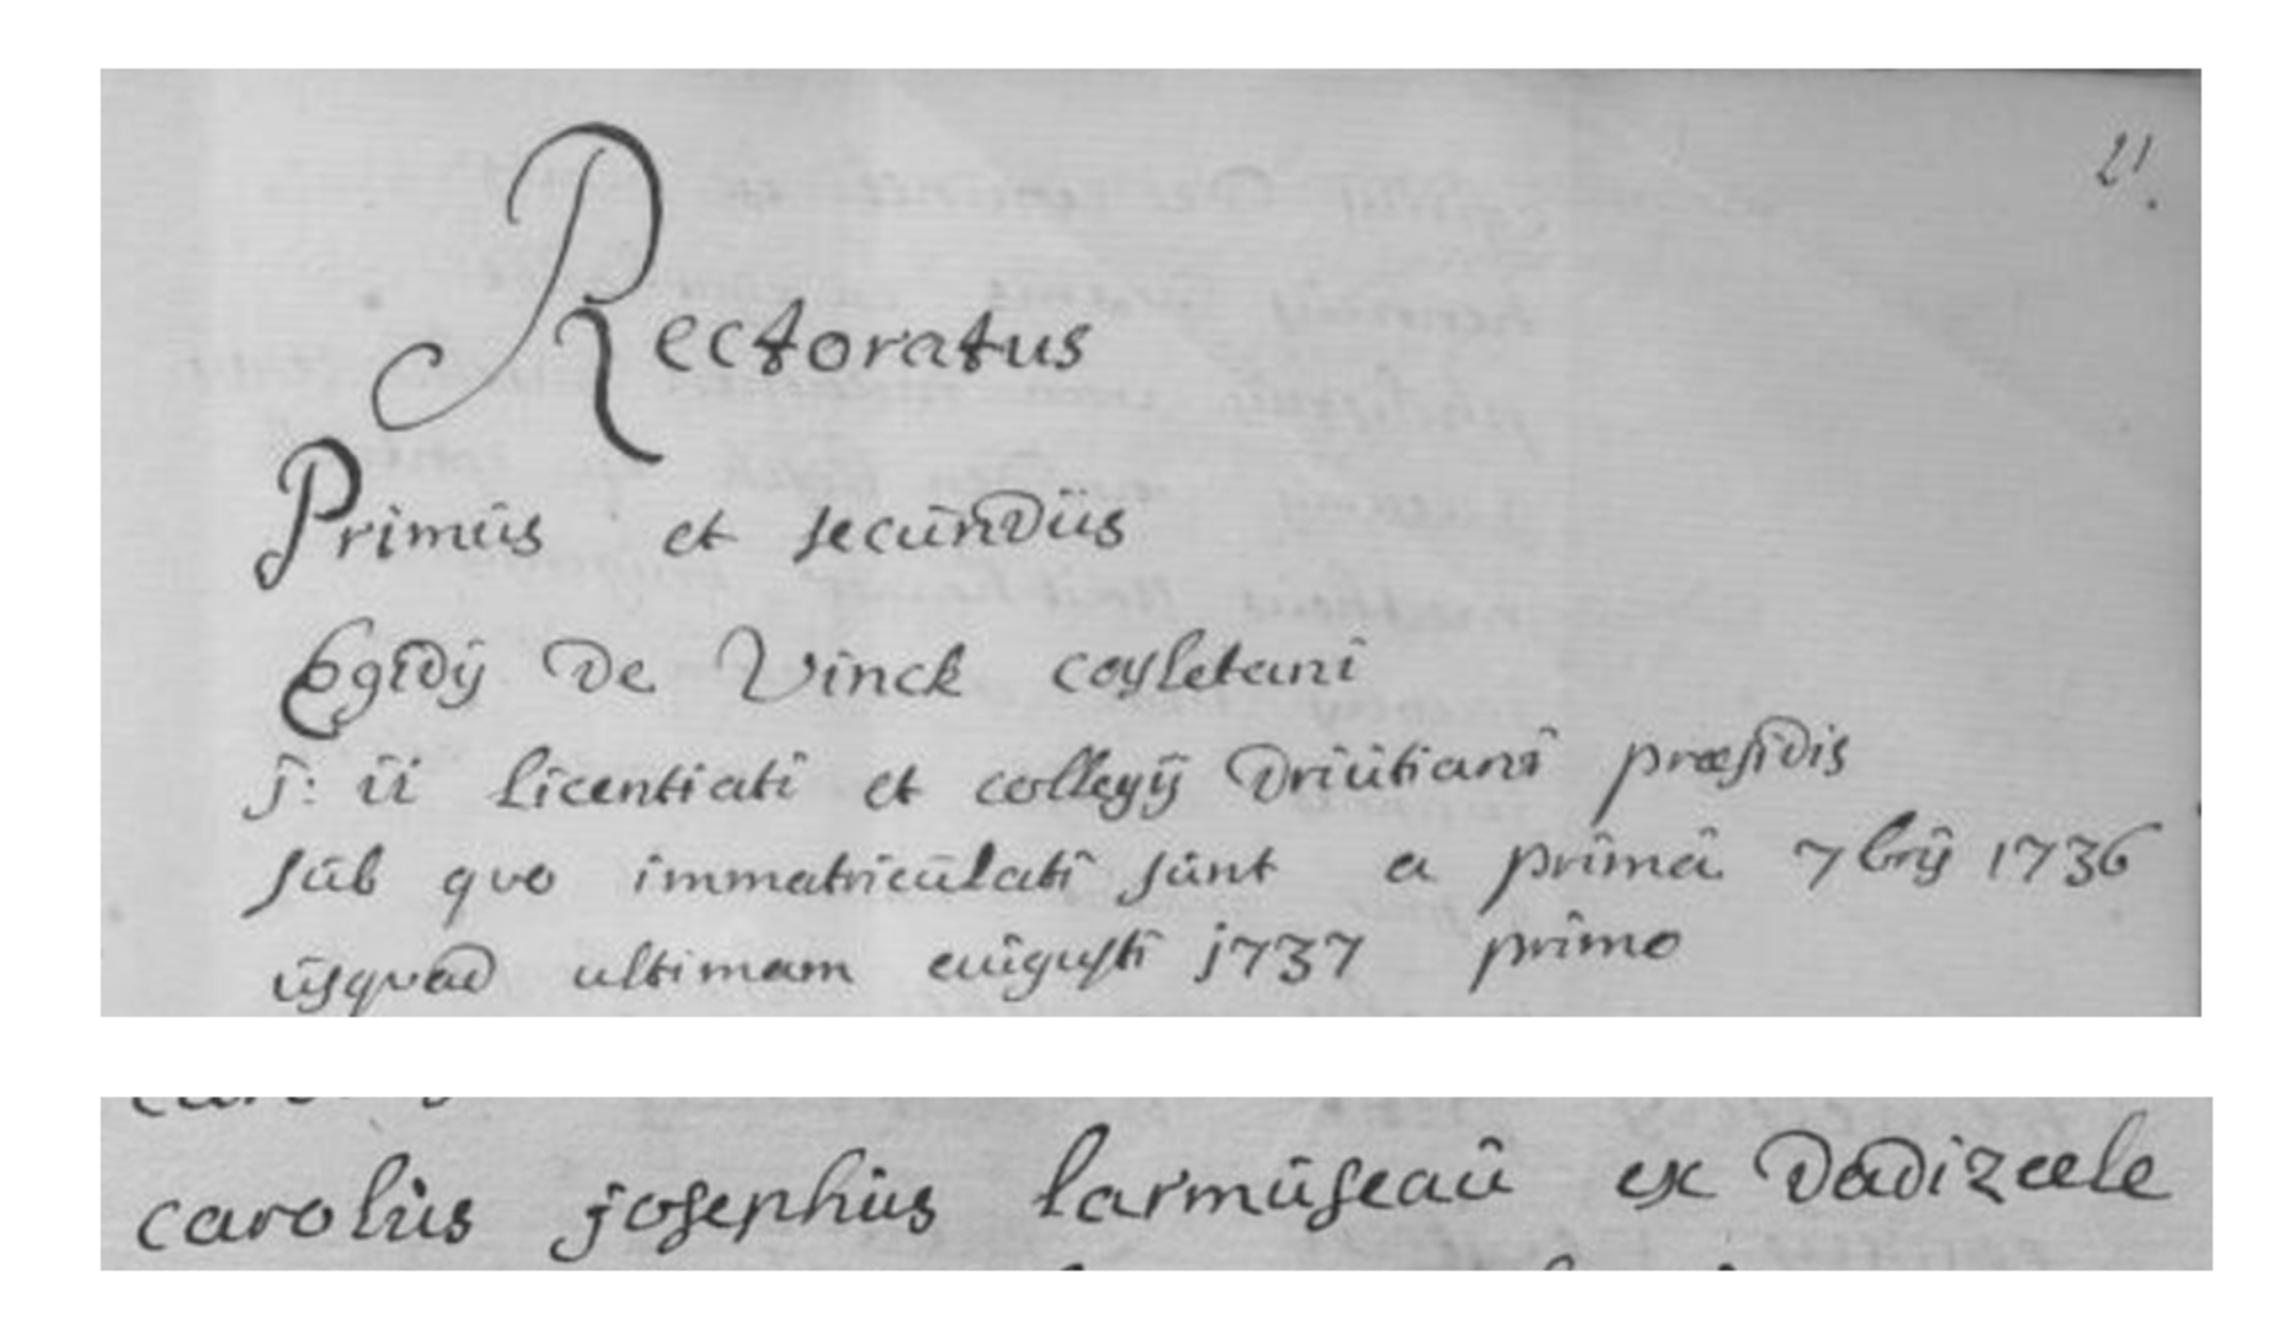 21.
Rectoratus
Primus et secundus
Egidij de Vinck coysletani
j: u licentiati et collegij Driutiani præsidis
sub quo immatriculati sunt a primâ 7brij 1736
usquead ultimam augusti j737 primo
carolus josephus larmuseau ex dadizeele